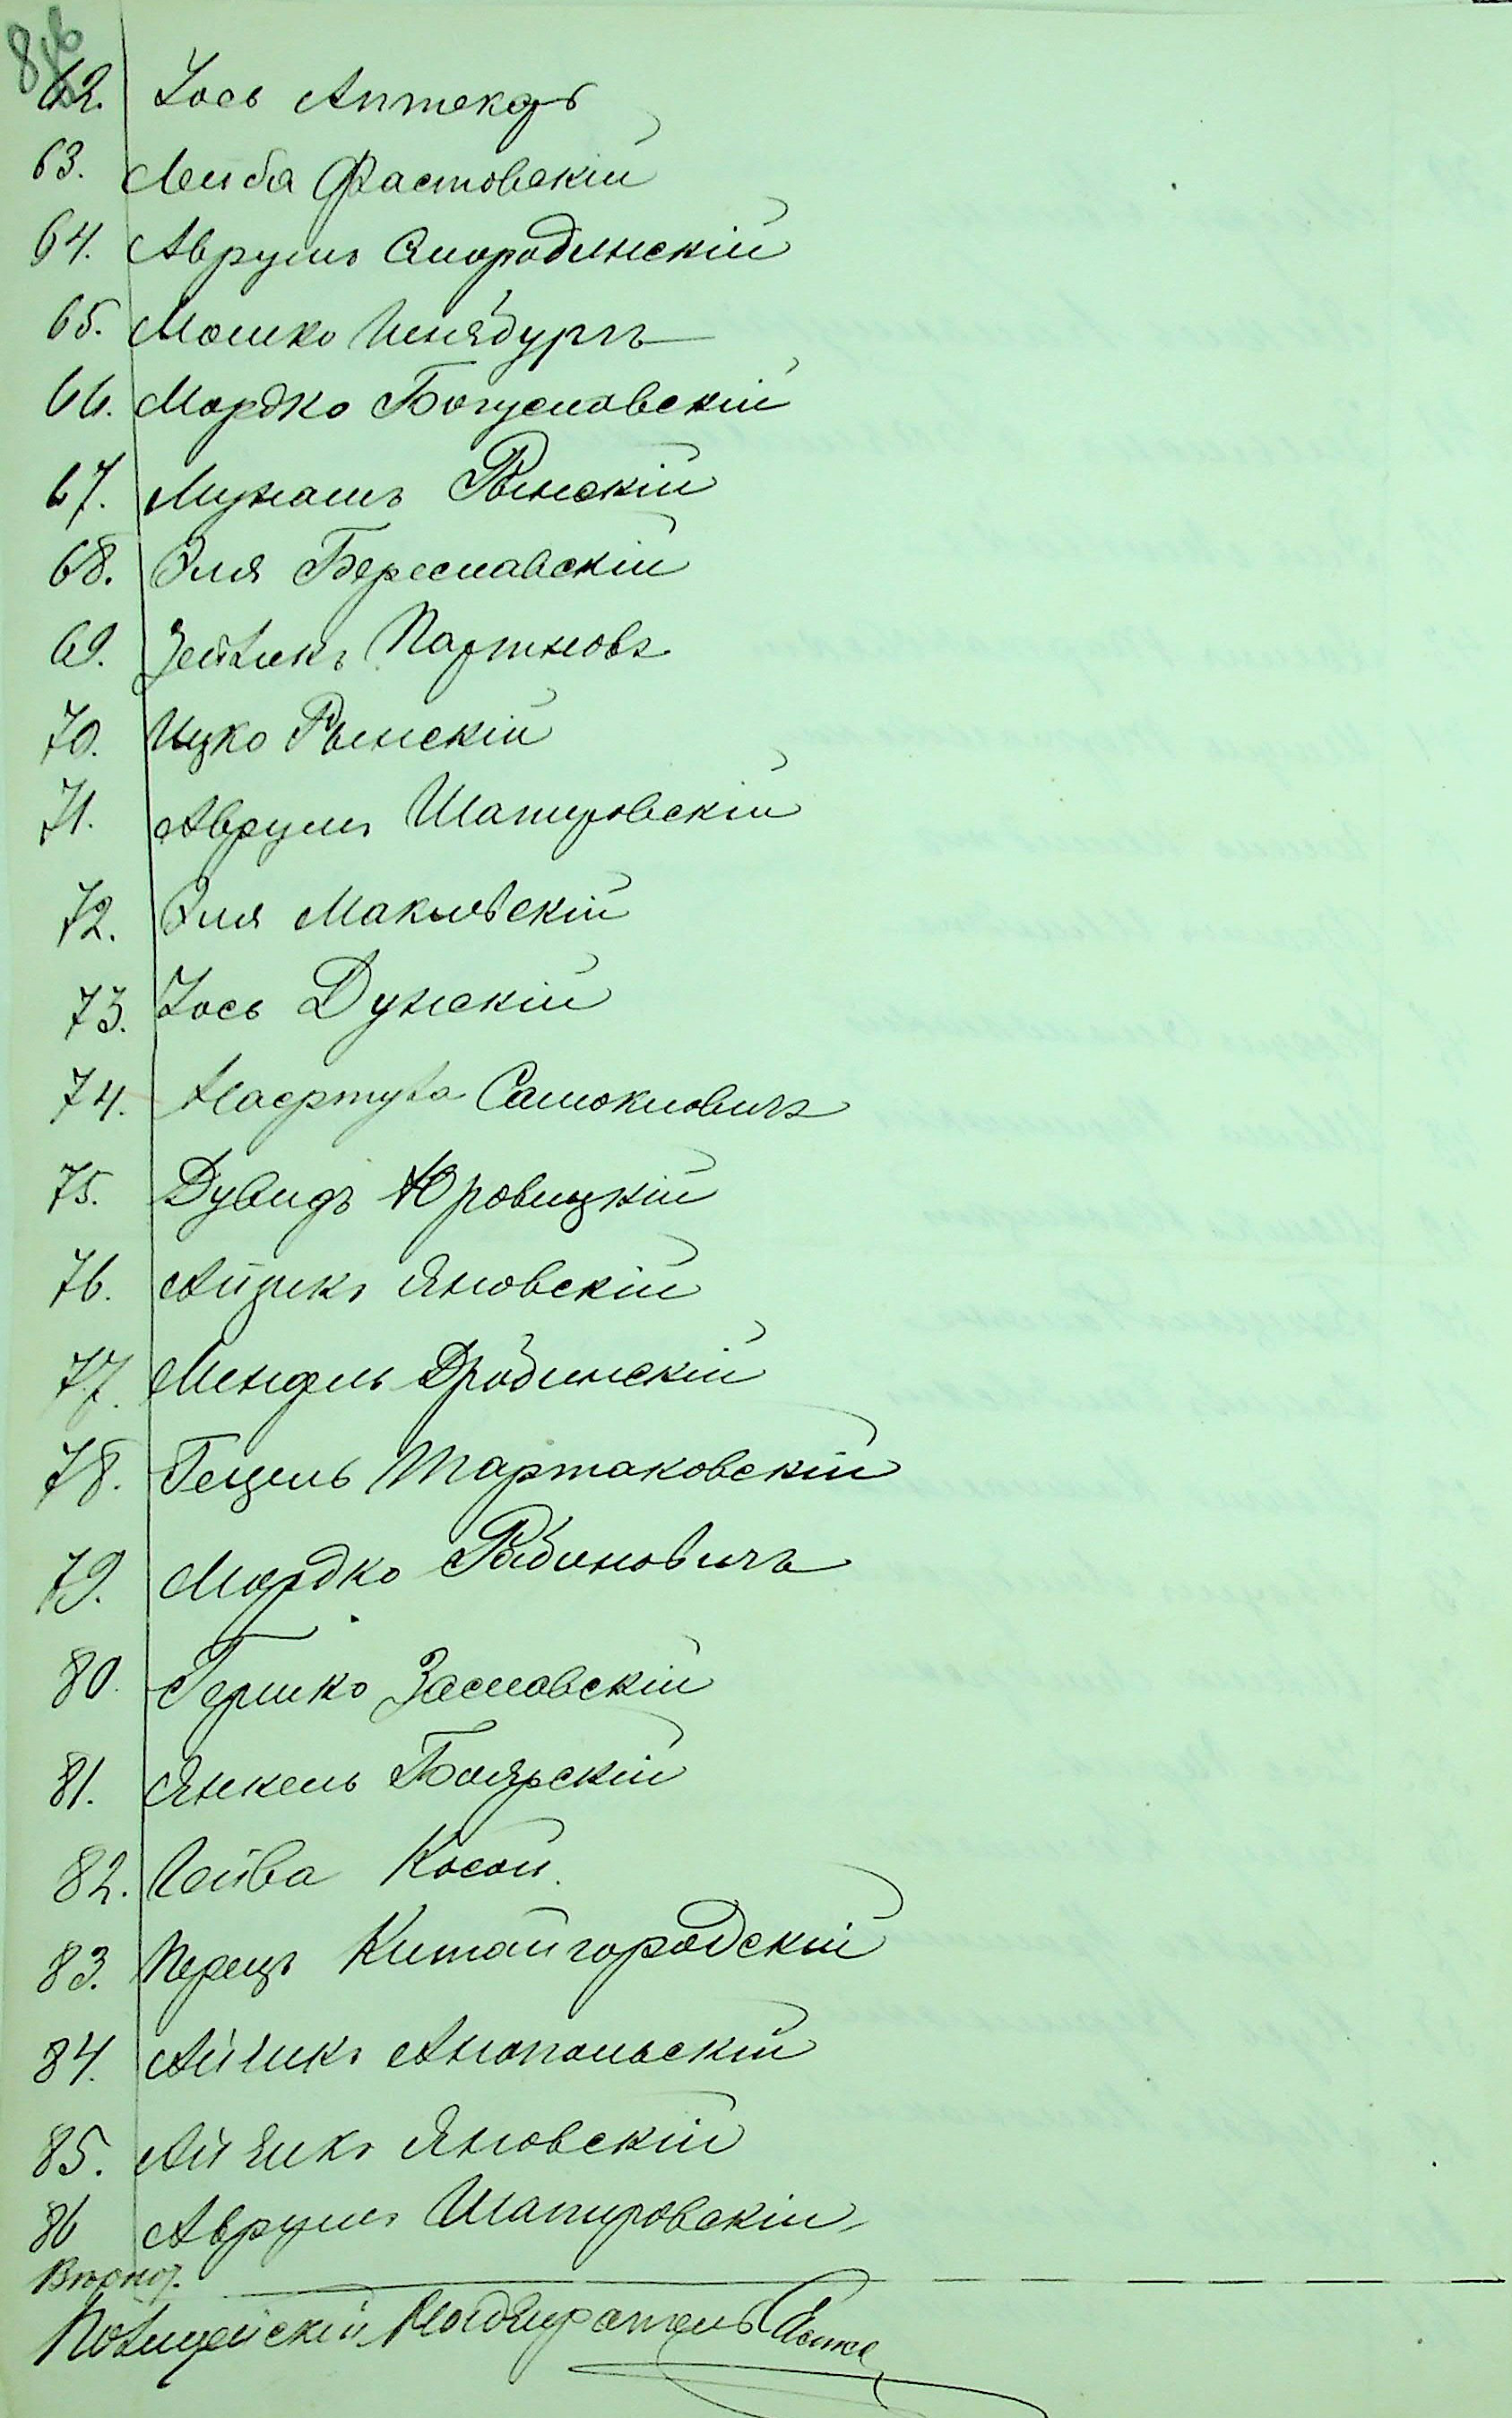 62. Іось Аптекарь
63. Лейба Фастовскій
64. Аврумъ Смородинскій
65. Мошко
66. Мордко Богуславскій
67. Рымскій
68. Эля Береславскій
69. Зейликъ Портновъ
70. Ицко Рымскій
71. Аврумъ Шапировскій
72. Эля
73. Іось Дунскій
74.
75. Дувидъ Юровицкій
76. Айзикъ Яновскій
77. Мендель Дробинскій
78. Гецель Тартаковскій
79. Мордко Рабиновичъ
80. Гершко Заславскій
81. Янкель Боярскій
82. Косой
83. Перецъ Китайгородскій
84. Айзикъ Анопольскій
85. Айзикъ Яновскій
86 Аврумъ Шапировскій
Полицейскій Надзиратель